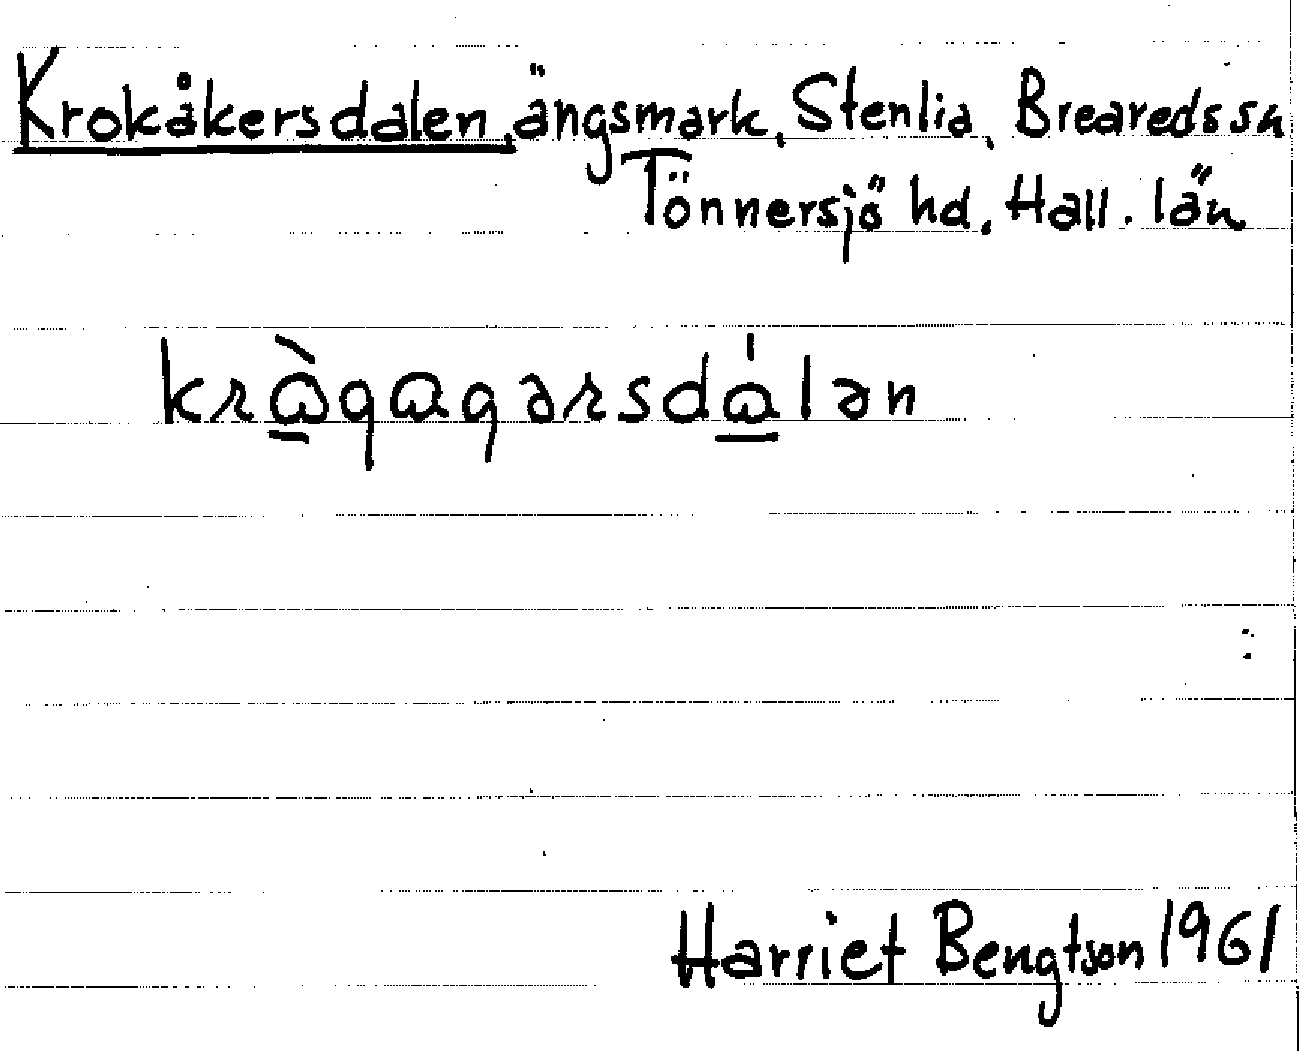 Krokåkersdalen, ängsmark, Stenlia, Breareds sn
Tönnersjö hd. Hall. län
kràgagərsdálən
Harriet Bengtson 1961